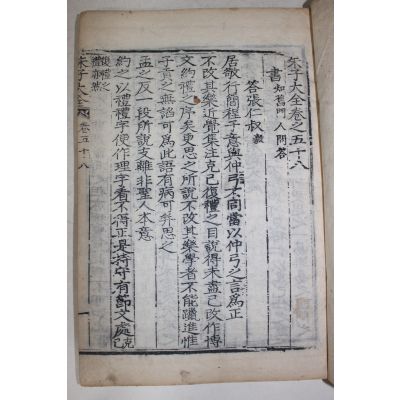 朱子大全卷之五十八
書 知舊門人問答
答張仁叔 毅
居敬行簡程子意與仲弓不同當以仲弓之言爲正
不改其樂近覺集注克己復禮之目說得未盡已改作博
文約禮之序矣更思之所說不改其樂學者不能躐進惟
子貢之無諂可爲此語有病可并思之
孟之反一段所說支離非聖人本意
約之以禮禮字便作理字看不得正是持守有節文處克己
復禮之
禮亦然
朱子大全 卷五十八
一